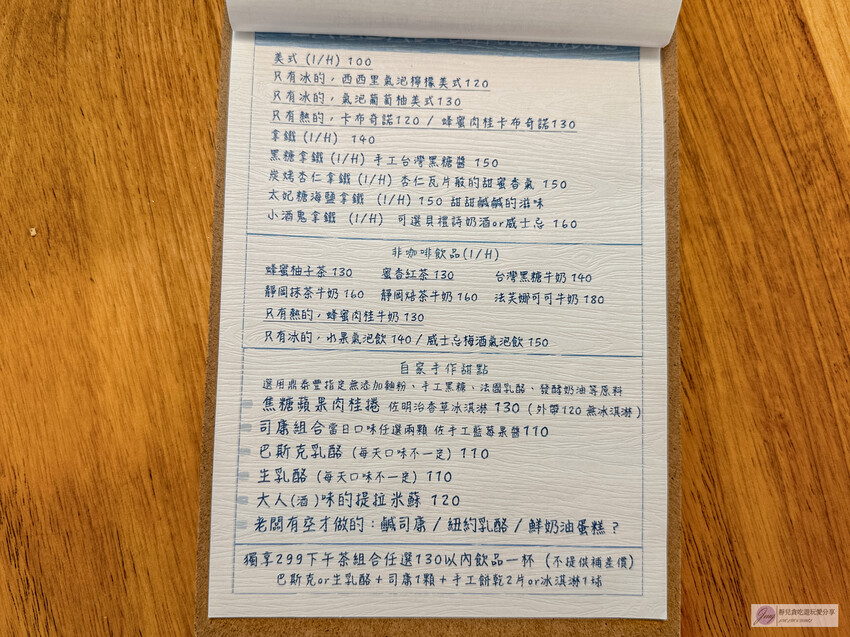 美式 (I/H) 100
只有冰的，西西里氣泡檸檬美式120
只有冰的，氣泡葡萄柚美式130
只有熱的，卡布奇諾120 / 蜂蜜肉桂卡布奇諾130
拿鐵 (I/H) 140
黑糖拿鐵 (I/H) 手工台灣黑糖醬 150
炭烤杏仁拿鐵 (I/H) 杏仁瓦片般的甜蜜香氣 150
太妃糖海鹽拿鐵 (I/H) 150 甜甜鹹鹹的滋味
小酒鬼拿鐵 (I/H) 可選貝禮詩奶酒or威士忌 160
非咖啡飲品(I/H)
蜂蜜柚子茶 130 蜜香紅茶 130 台灣黑糖牛奶 140
靜岡抹茶牛奶 160 靜岡焙茶牛奶 160 法芙娜可可牛奶 180
只有熱的，蜂蜜肉桂牛奶 130
只有冰的，水果氣泡飲 140 / 威士忌梅酒氣泡飲 150
自家手作甜點
選用鼎泰豐指定無添加麵粉、手工黑糖、法國乳酪、發酵奶油等原料
焦糖蘋果肉桂捲 佐明治香草冰淇淋 130 (外帶120 無冰淇淋)
司康組合當日口味任選兩顆 佐手工藍莓果醬110
巴斯克乳酪 (每天口味不一定) 110
生乳酪 (每天口味不一定) 110
大人(酒)味的提拉米蘇 120
老闆有空才做的：鹹司康 / 紐約乳酪 / 鮮奶油蛋糕 ?
獨享299下午茶組合任選130以內飲品一杯 (不提供補差價)
巴斯克or生乳酪＋司康1顆＋手工餅乾2片or冰淇淋1球
靜兒貪吃遊玩愛分享